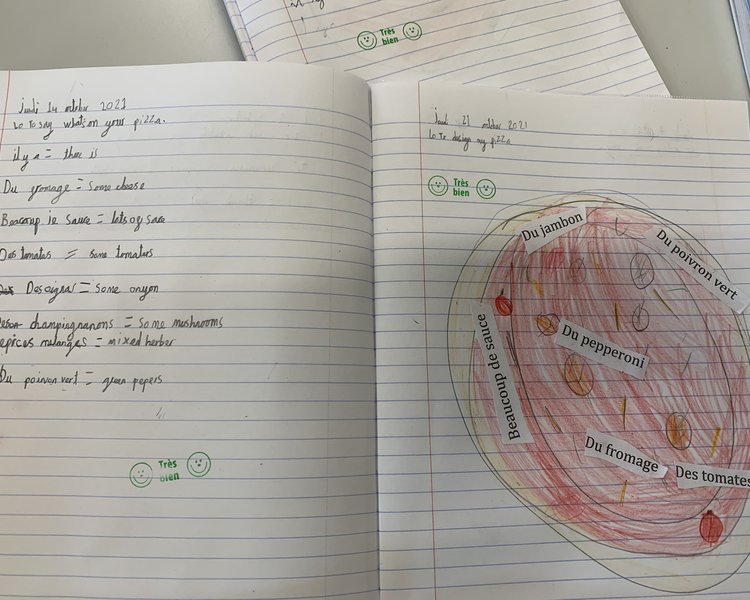 Très
bien
jeudi 14 october 2021
Lo To say whats on your pizza.
il y a = there is
Du fromage = Some cheese
Beacoup ie sauce = lots of sauce
Des tomates = some tomatoes
= Some onyon
champingnanons = Some mushrooms
epices mlanges = mixed herber
Du poivron vert = green pepers
Très
bien
Jeudi 21 october 2021
Lo To design my pizza
Très
bien
Du jambon
Du poivron vert
Beaucoup de sauce
Du pepperoni
Du fromage
Des tomates